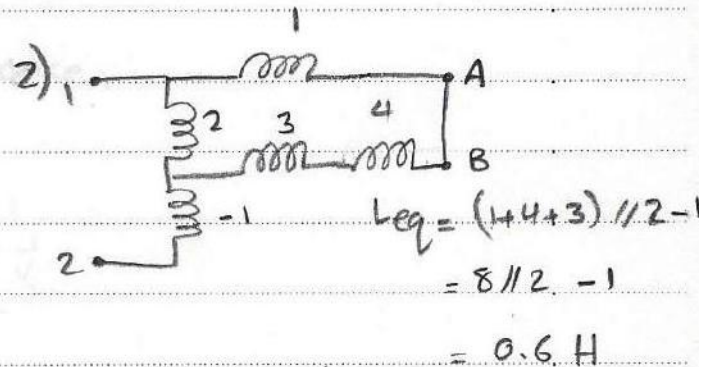 1
2) 1 A
2 3 4
B
-1 Leq = (1+4+3) // 2 -1
2
= 8 // 2 - 1
= 0.6 H